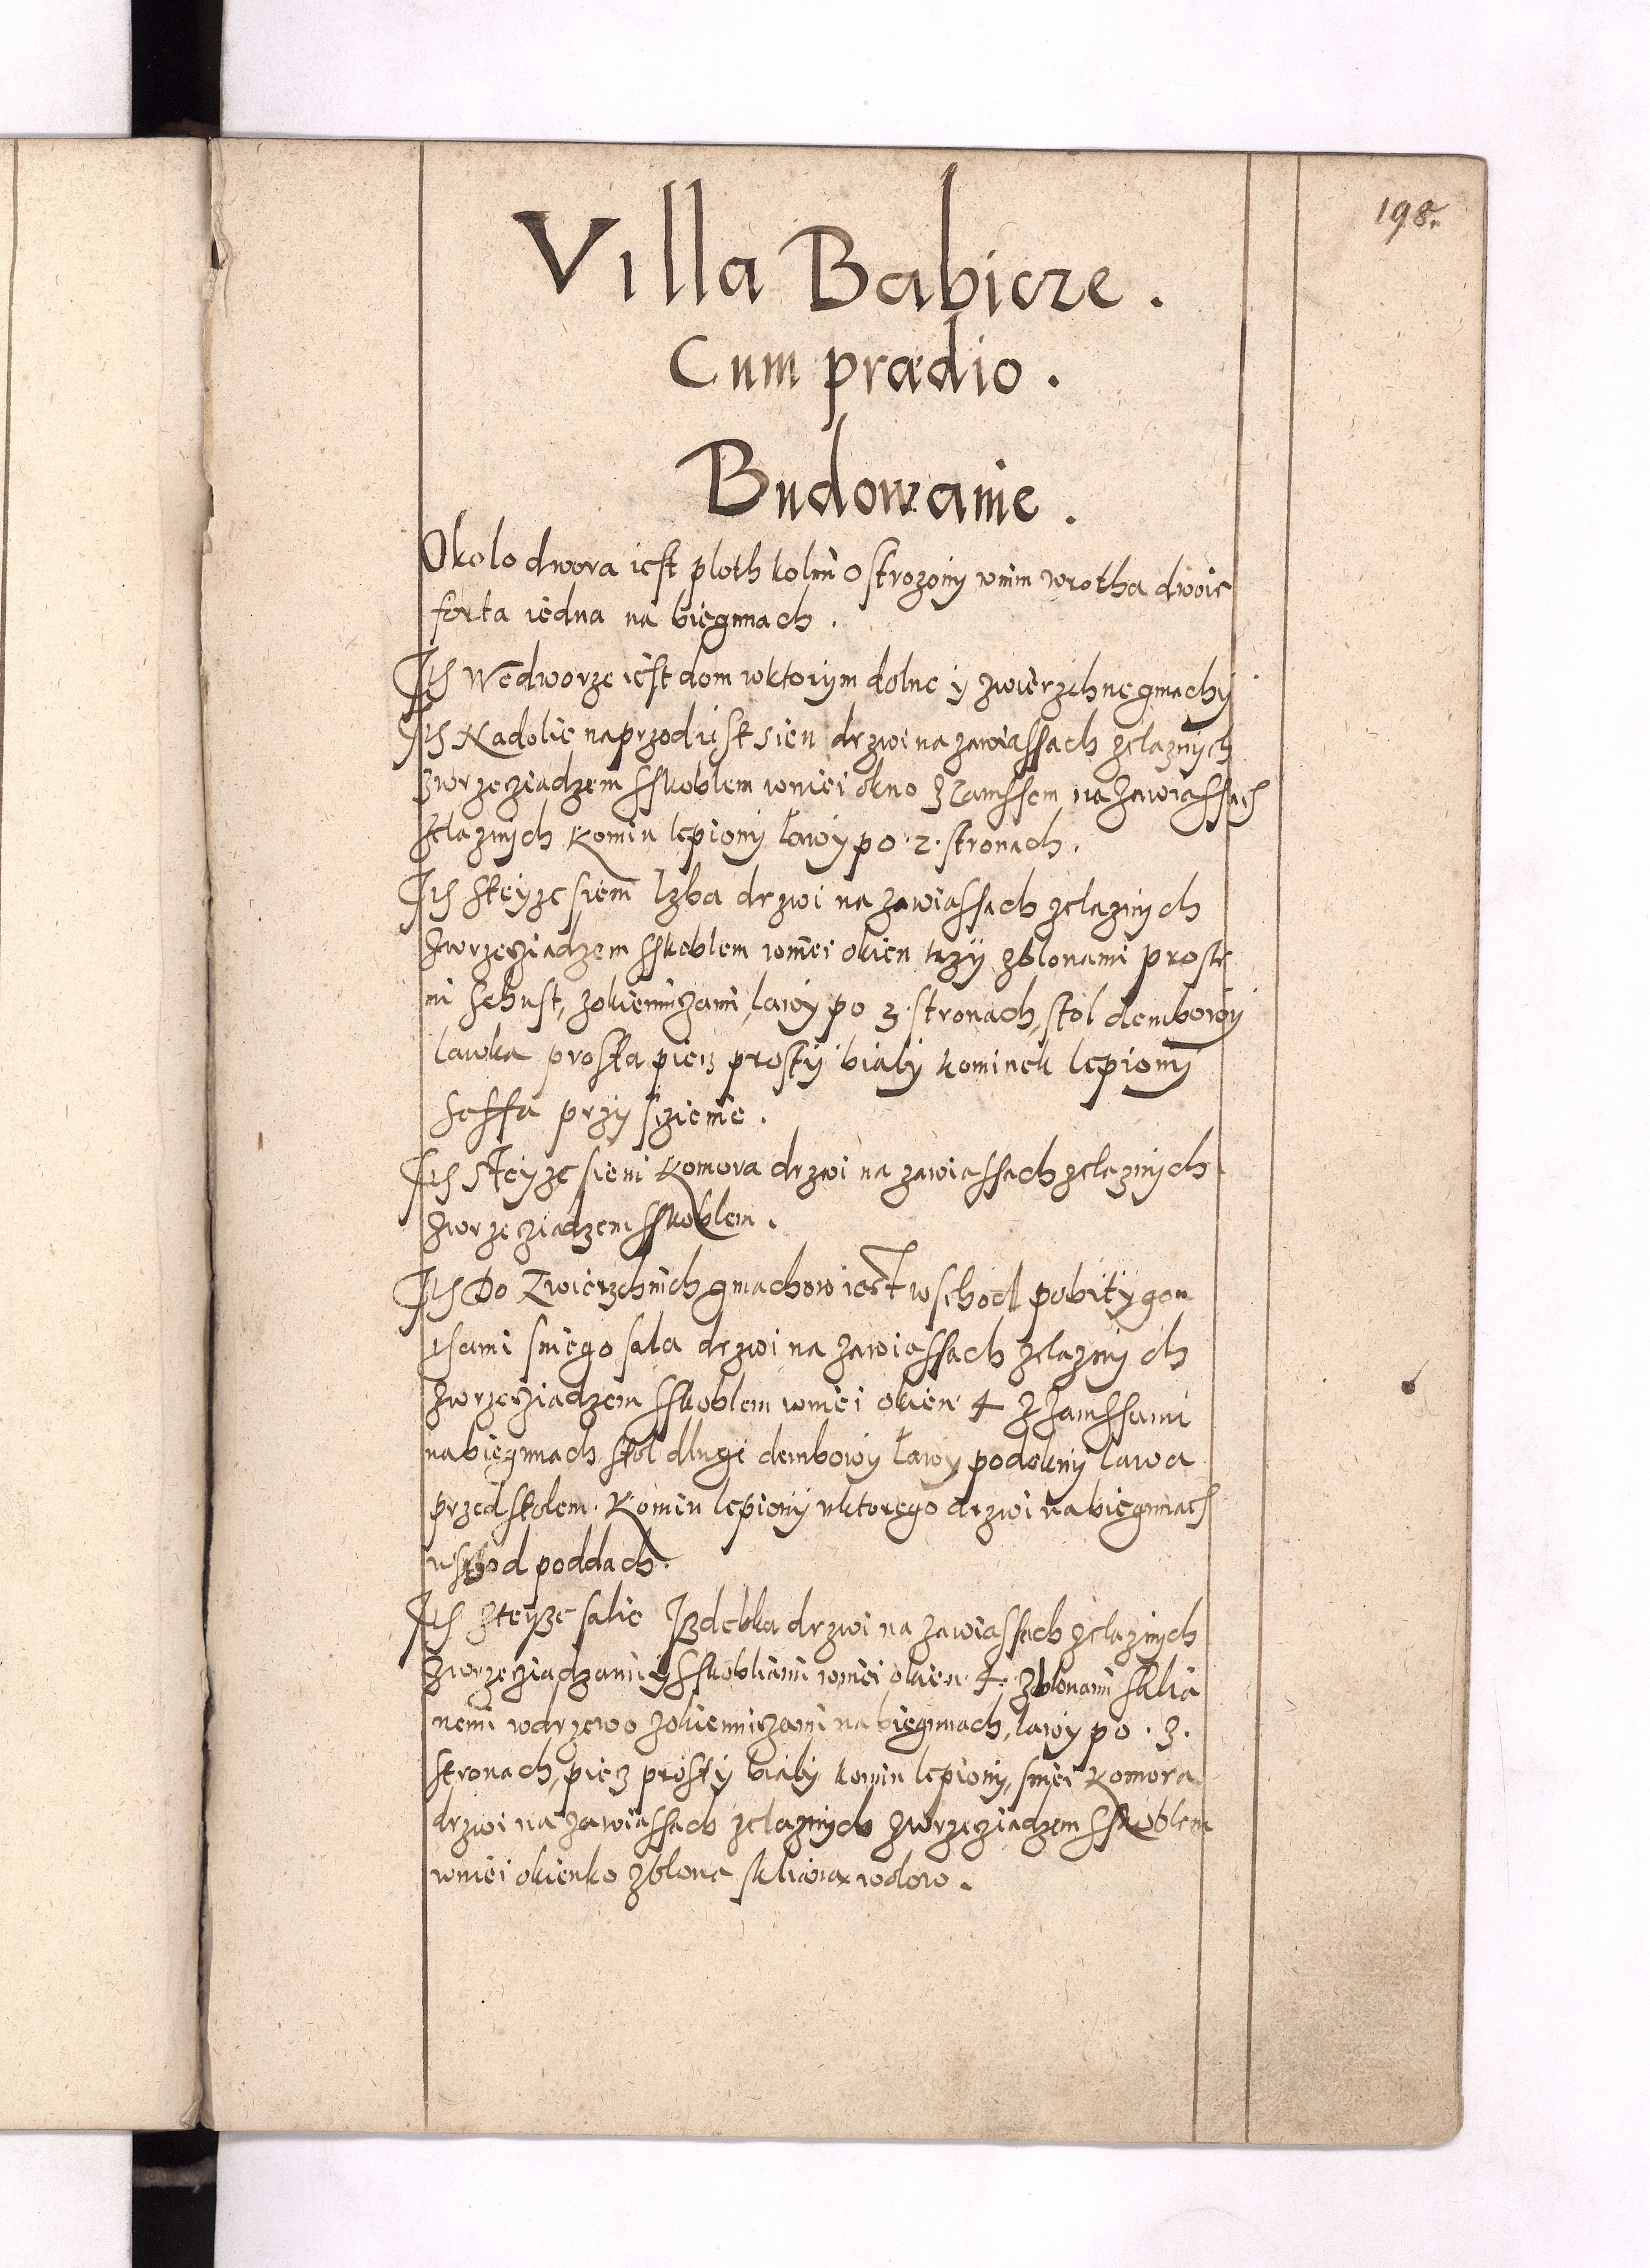 198.
Villa Babicze.
Cum prædio.
Budowanie.
Okolo dwora iest ploth kolmi ostrozony wnim wrotha dwoie
forta iedna na biegunach.
Its Wedworze iest dom wktorym dolne y zwierzchne gmachy
Its Nadolie naprzod iest sien drzwi na zawiassach zelaznych
zwrzecziadzem sskoblem wniei okno zramssem na zawiassach
zelaznych komin lepiony lawy po .2. stronach.
Its Steyze sieni Izba drzwi na zawiassach zelaznych
zwrzecziadzem sskoblem wniei okien trzy zblonami proste
mi zokienniczami, lawy po 3. stronach, stol dembowy
lawka prosta piecz prosty bialy kominek lepiony
szaffa przy sczienie.
Its Steyze sieni komora drzwi na zawiassach zelaznych
zwrzecziadzem sskoblem.
Its Do Zwierzchnich gmachow iest wschod pobity gon
thami sniego sala drzwi na zawiassach zelaznych
zwrzecziadzem sskoblem wniei okien 4 zramssami
na biegunach stol dlugi dembowy lawy podokny lawa
przed stolem. Komin lepiony uktorego drzwi na biegunach
wschod poddach.
Its Zteyze salie Izdebka drzwi na zawiassach zelaznych
zwrzecziadzami y sskobliami wniei okien 4. zblonami sklia
nemi wdrzewo zokienniczami na biegunach, lawy po .3.
stronach, piecz prosty bialy komin lepiony, sniei komora
drzwi na zawiassach zelaznych zwrzecziadzem sskoblem
wniei okienko zblona wolow.